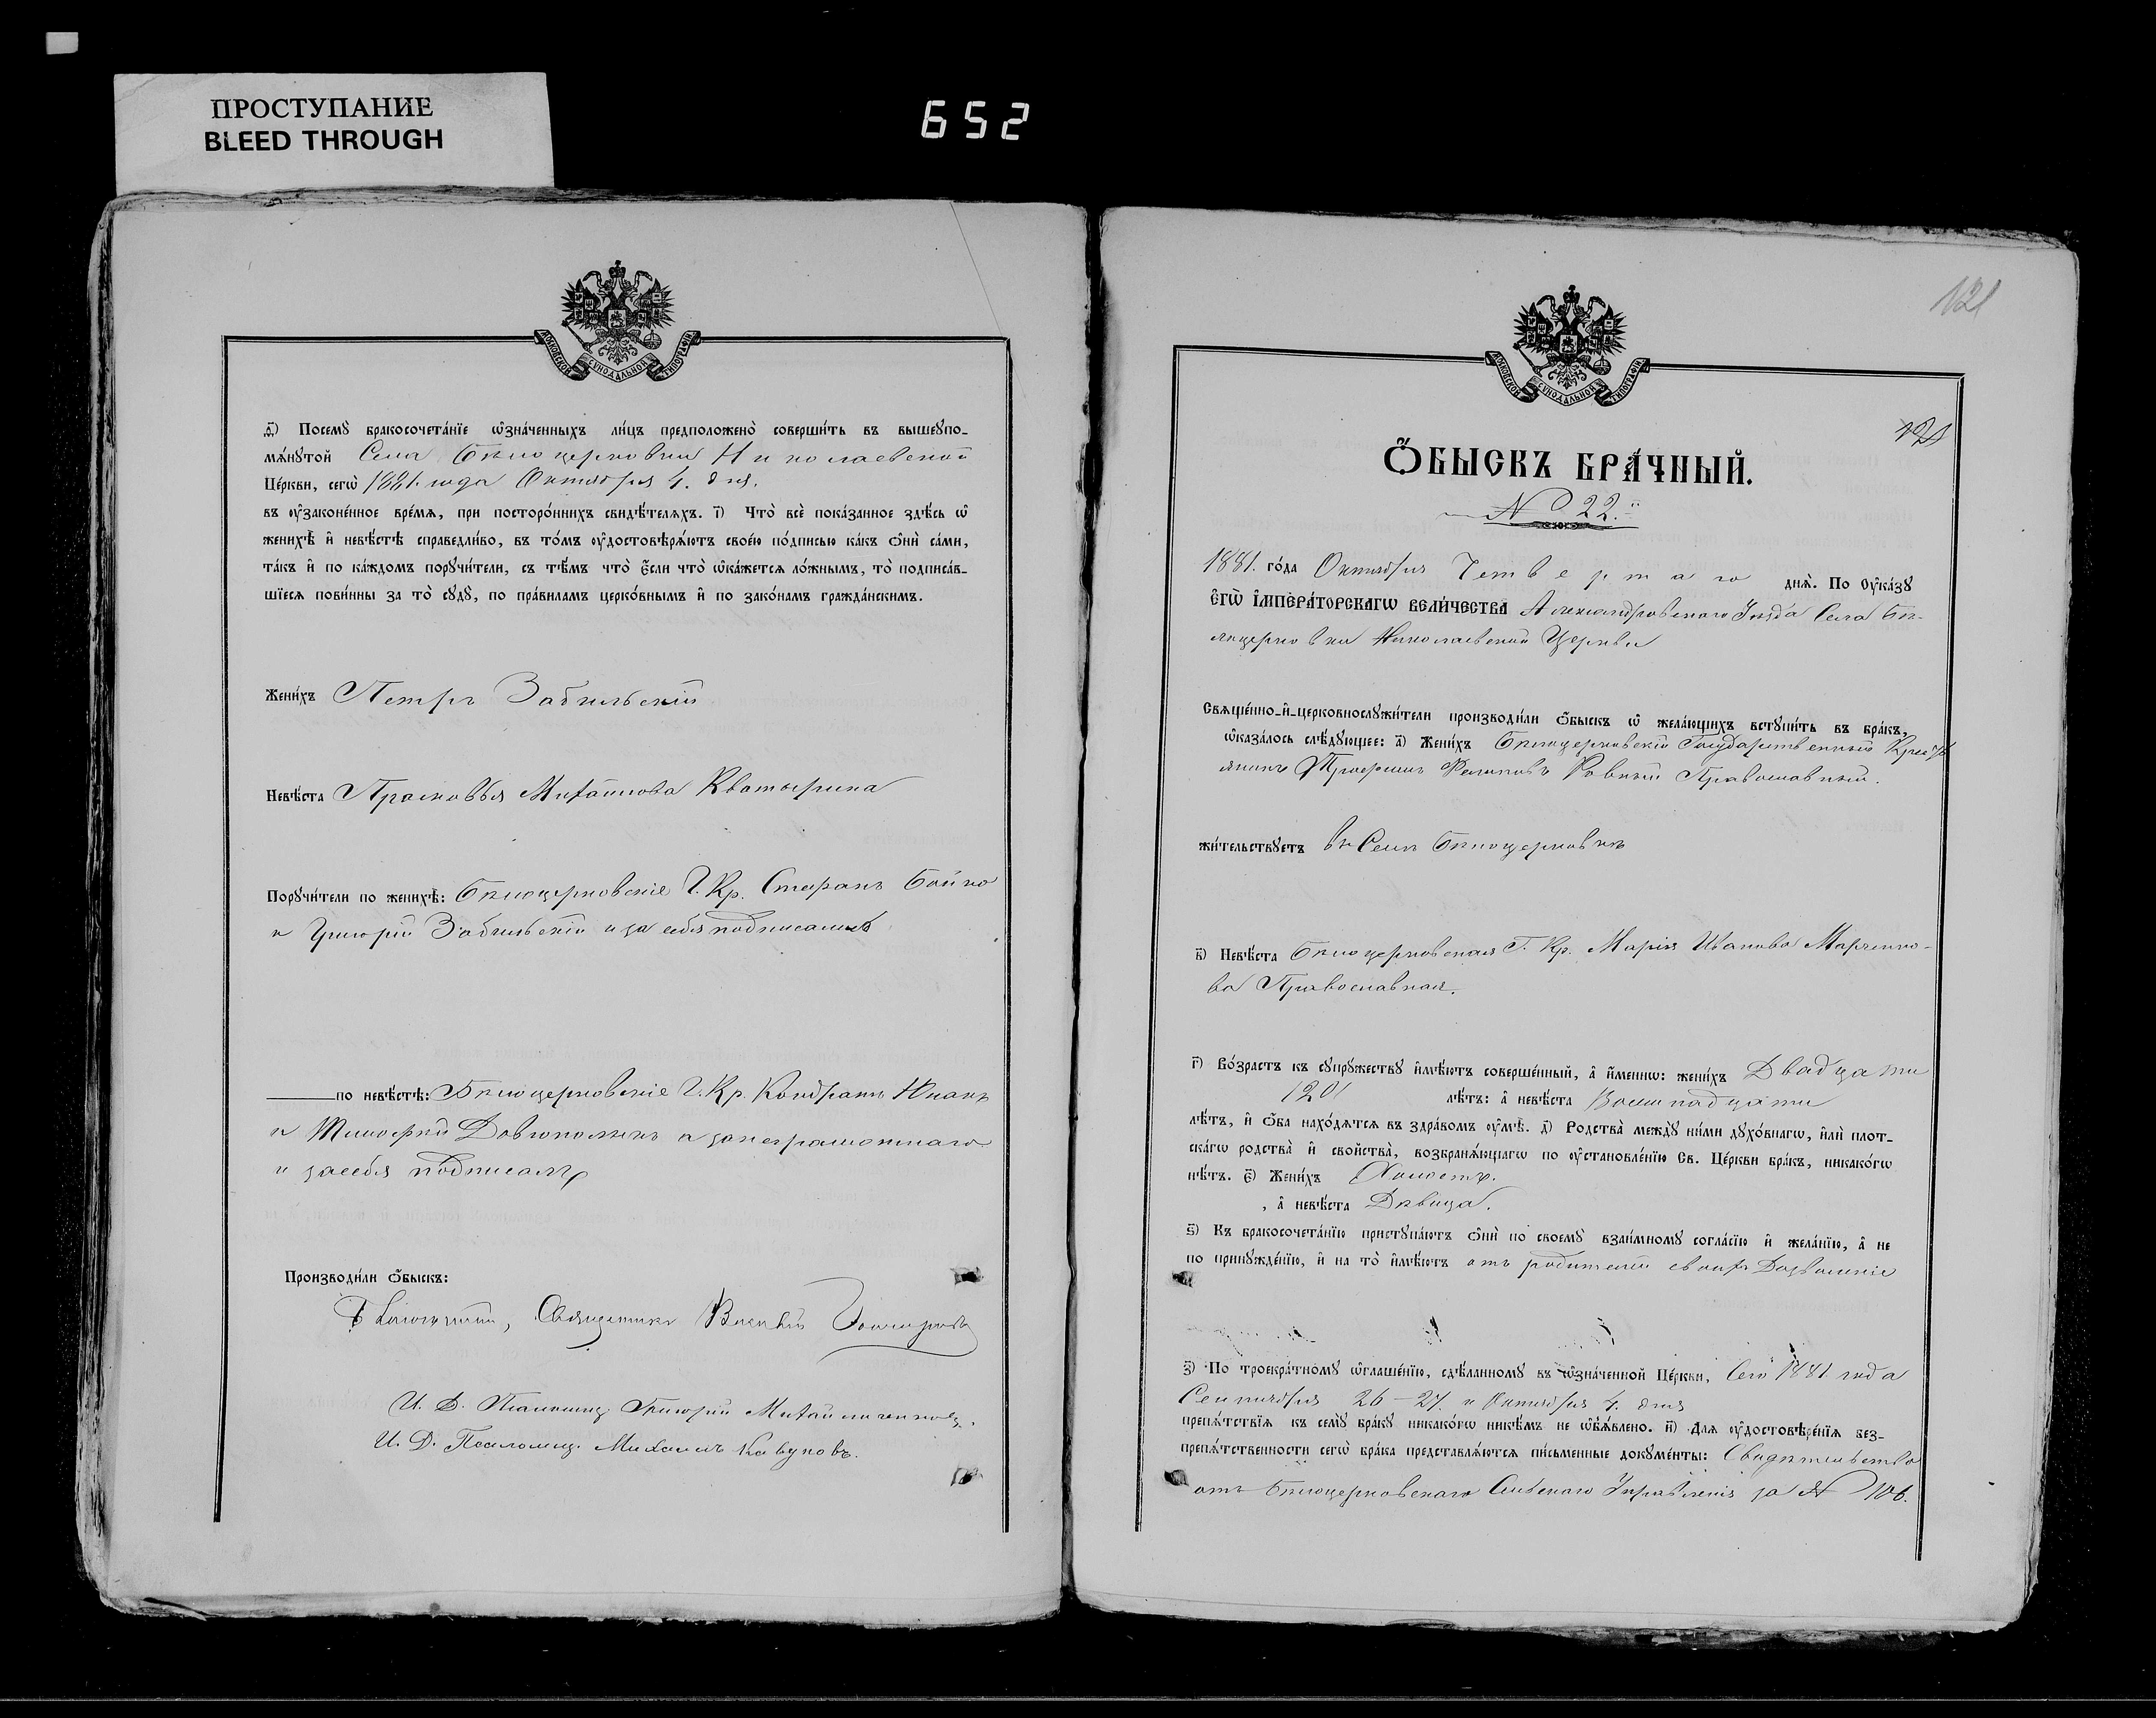 ПРОСТУПАНИЕ
BLEED THROUGH
652
МОСКОВСКОЙ СѴНОДАЛЬНОЙ ТИПОГРАФІИ
Посемꙋ бракосочета́нїе ѡ҆зна́ченныхъ ли́цъ предположено̀ соверши́ть въ вышеꙋпо-
мѧ́нꙋтой Села Бѣлоцерковки Николаевской
Це́ркви, сегѡ̀ 1881. года Октября 4. дня.
въ ᲂу҆зако́не́нное вре́мѧ, при посторо́ннихъ свидѣ́телѧхъ. і҃) Что̀ всѐ пока́занное здѣ́сь ѡ҆
женихѣ̀ и҆ невѣ́стѣ справедли́во, въ то́мъ ᲂу҆достовѣрѧ́ютъ свое́ю по́дписью ка́къ ѻ҆нѝ са́ми,
та́къ и҆ по ка́ждомъ порꙋчи́тели, съ тѣ́мъ что̀ є҆́сли что̀ ѡ҆ка́жетсѧ ло́жнымъ, то̀ подписа́в-
шїесѧ пови́нны за то̀ сꙋдꙋ̀, по пра́виламъ церко́внымъ и҆ по зако́намъ гражда́нскимъ.
Жени́хъ Петръ Забильскій
Невѣ́ста Прасковья Михайлова Кватырина
Порꙋчи́тели по женихѣ̀: Бѣлоцерковскіе Г. Кр. Стефанъ Бойко
и Григорій Забильскій и за себя подписались
по невѣ́стѣ: Бѣлоцерковскіе Г. Кр. Кондратъ
и Тимофей и за неграмотнаго
и за себя подписалъ
Производи́ли ѻ҆́быскъ:
Священникъ
И. Д. Псаломщ. Григорій
И. Д. Псаломщ. Михаилъ Кавуновъ.
121
МОСКОВСКОЙ СѴНОДАЛЬНОЙ ТИПОГРАФІИ
121
Ѻ҆́БЫСКЪ БРА́ЧНЫЙ.
N 22.
1881. го́да Октября Четвертаго днѧ̀. По Оу҆ка́зꙋ
Є҆ГѠ̀ И҆МПЕРА́ТОРСКАГѠ ВЕЛИ́ЧЕСТВА Александровскаго Уѣзда Села Бѣ-
лоцерковки Николаевской Церкви
Сваще́нно-и҆-церковнослꙋжи́тели производи́ли ѻ҆́быскъ ѡ҆ жела́ющихъ встꙋпи́ть въ бра́къ,
ѡ҆каза́лось слѣ́дꙋющее: а҃) Жени́хъ Бѣлоцерковскій Государственный Кресть-
янинъ Трофимъ Филиповъ Ровный Православный.
жи́тельствꙋетъ въ Селѣ Бѣлоцерковкѣ
в҃) Невѣ́ста Бѣлоцерковская Г. Кр. Марія Иванова Марченко-
ва Православная.
г҃) Во́зрастъ къ сꙋпрꙋ́жествꙋ и҆мѣ́ютъ соверше́нный, а҆ и҆́менно: жени́хъ Двадцати
/20/ лѣ́тъ: а҆ невѣ́ста Восемнадцати
лѣ́тъ, и҆ ѻ҆́ба нахо́дѧтсѧ въ здра́вомъ ᲂу҆мѣ̀. д҃) Родства̀ междꙋ̀ ни́ми дꙋхо́внагѡ, и҆лѝ плот-
ска́гѡ родства̀ и҆ сво́йства̀, возбранѧ́ющагѡ по ᲂу҆становле́нїю Св. Це́ркви бра́къ, никако́гѡ
нѣ́тъ. є҃) Жени́хъ Холостъ.
, а҆ невѣ́ста Дѣвица.
ѕ҃) Къ бракосочета́нїю пристꙋпа́ютъ ѻ҆нѝ по своемꙋ̀ взаи́мномꙋ согла́сїю и҆ жела́нїю, а҆ не
по принꙋжде́нїю, и҆ на то̀ и҆мѣ́ютъ отъ родителей своихъ Дозволеніе
з҃) По троекра́тномꙋ ѡ҆глаше́нїю, сдѣ́ланномꙋ въ ѡ҆зна́ченной Це́ркви, Сего 1881 года
Сентября 26 – 27. и Октября 4. дня
препѧ́тствїѧ къ семꙋ̀ бра́кꙋ никако́гѡ никѣ́мъ не ѡ҆б̾ѧ́влено. и҃) Длѧ ᲂу҆достовѣре́нїѧ без-
препѧ́тственности сегѡ̀ бра́ка представлѧ́ютсѧ пи́сьменные докꙋме́нты: Свидѣтельство
отъ Бѣлоцерковскаго Сельскаго Управленія за N 106.